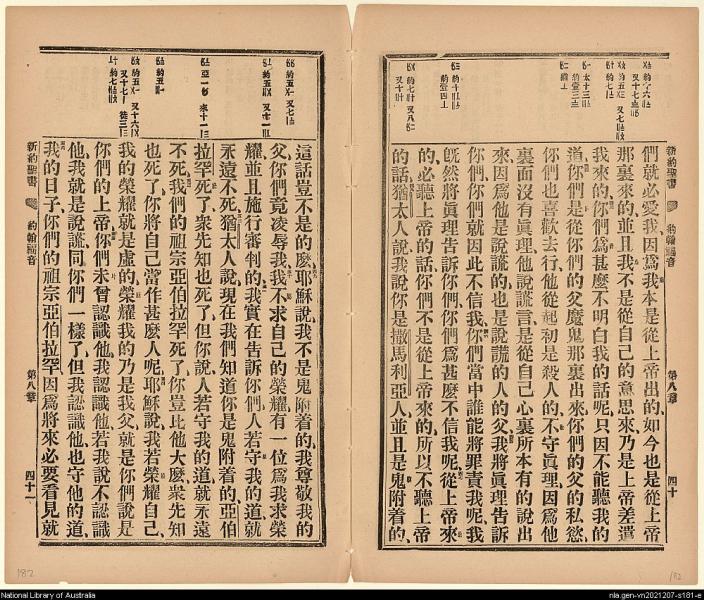 新約聖書 約翰福音 第八章 四十
們就必愛我因爲我本是從上帝出的如今也是從上帝
那裏來的並且我不是從自己的意思來乃是上帝差遣
我來的你們爲甚麼不明白我的話呢只因不能聽我的
道你們是從你們的父魔鬼那裏出來你們的父的私慾
你們也喜歡去行他從起初是殺人的不守眞理因爲他
裏面沒有眞理他說謊言是從自己心裏所本有的說出
來因爲他是說謊的也是說謊的人的父我將眞理告訴
你們你們就因此不信我你們當中誰能將罪責我呢我
旣然將眞理告訴你們你們爲甚麼不信我呢從上帝來
的必聽上帝的話你們不是從上帝來的所以不聽上帝
的話猶太人說我說你是撒馬利亞人並且是鬼附着的
這話豈不是的麼耶穌說我不是鬼附着的我尊敬我的
父你們竟凌辱我我不求自己的榮耀有一位爲我求榮
耀並且施行審判的我實在告訴你們人若守我的道就
永遠不死猶太人說現在我們知道你是鬼附着的亞伯
拉罕死了衆先知也死了但你說人若守我的道就永遠
不死我們的祖宗亞伯拉罕死了你豈比他大麼衆先知
也死了你將自己當作甚麼人呢耶穌說我若榮耀自己
我的榮耀就是虛的榮耀我的乃是我父就是你們說是
你們的上帝你們未曾認識他我認識他若我說不認識
他我就是說謊同你們一樣了但我認識他也守他的道
我的日子你們的祖宗亞伯拉罕因爲將來必要看見就
新約聖書 約翰福音 第八章 四十一
182
182
National Library of Australia
nla.gen-vn2021207-s181-e